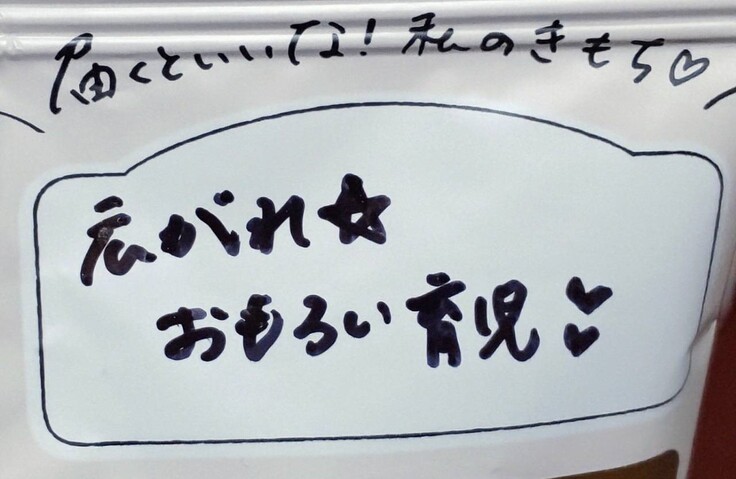 届くといいな！私のきもち♡
広がれ☆
おもろい育児♥♥